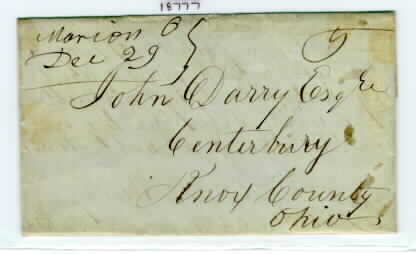 18777
Marion O
Dec 29
5
John Darry Esqre
Centerbury
Knox County
Ohio